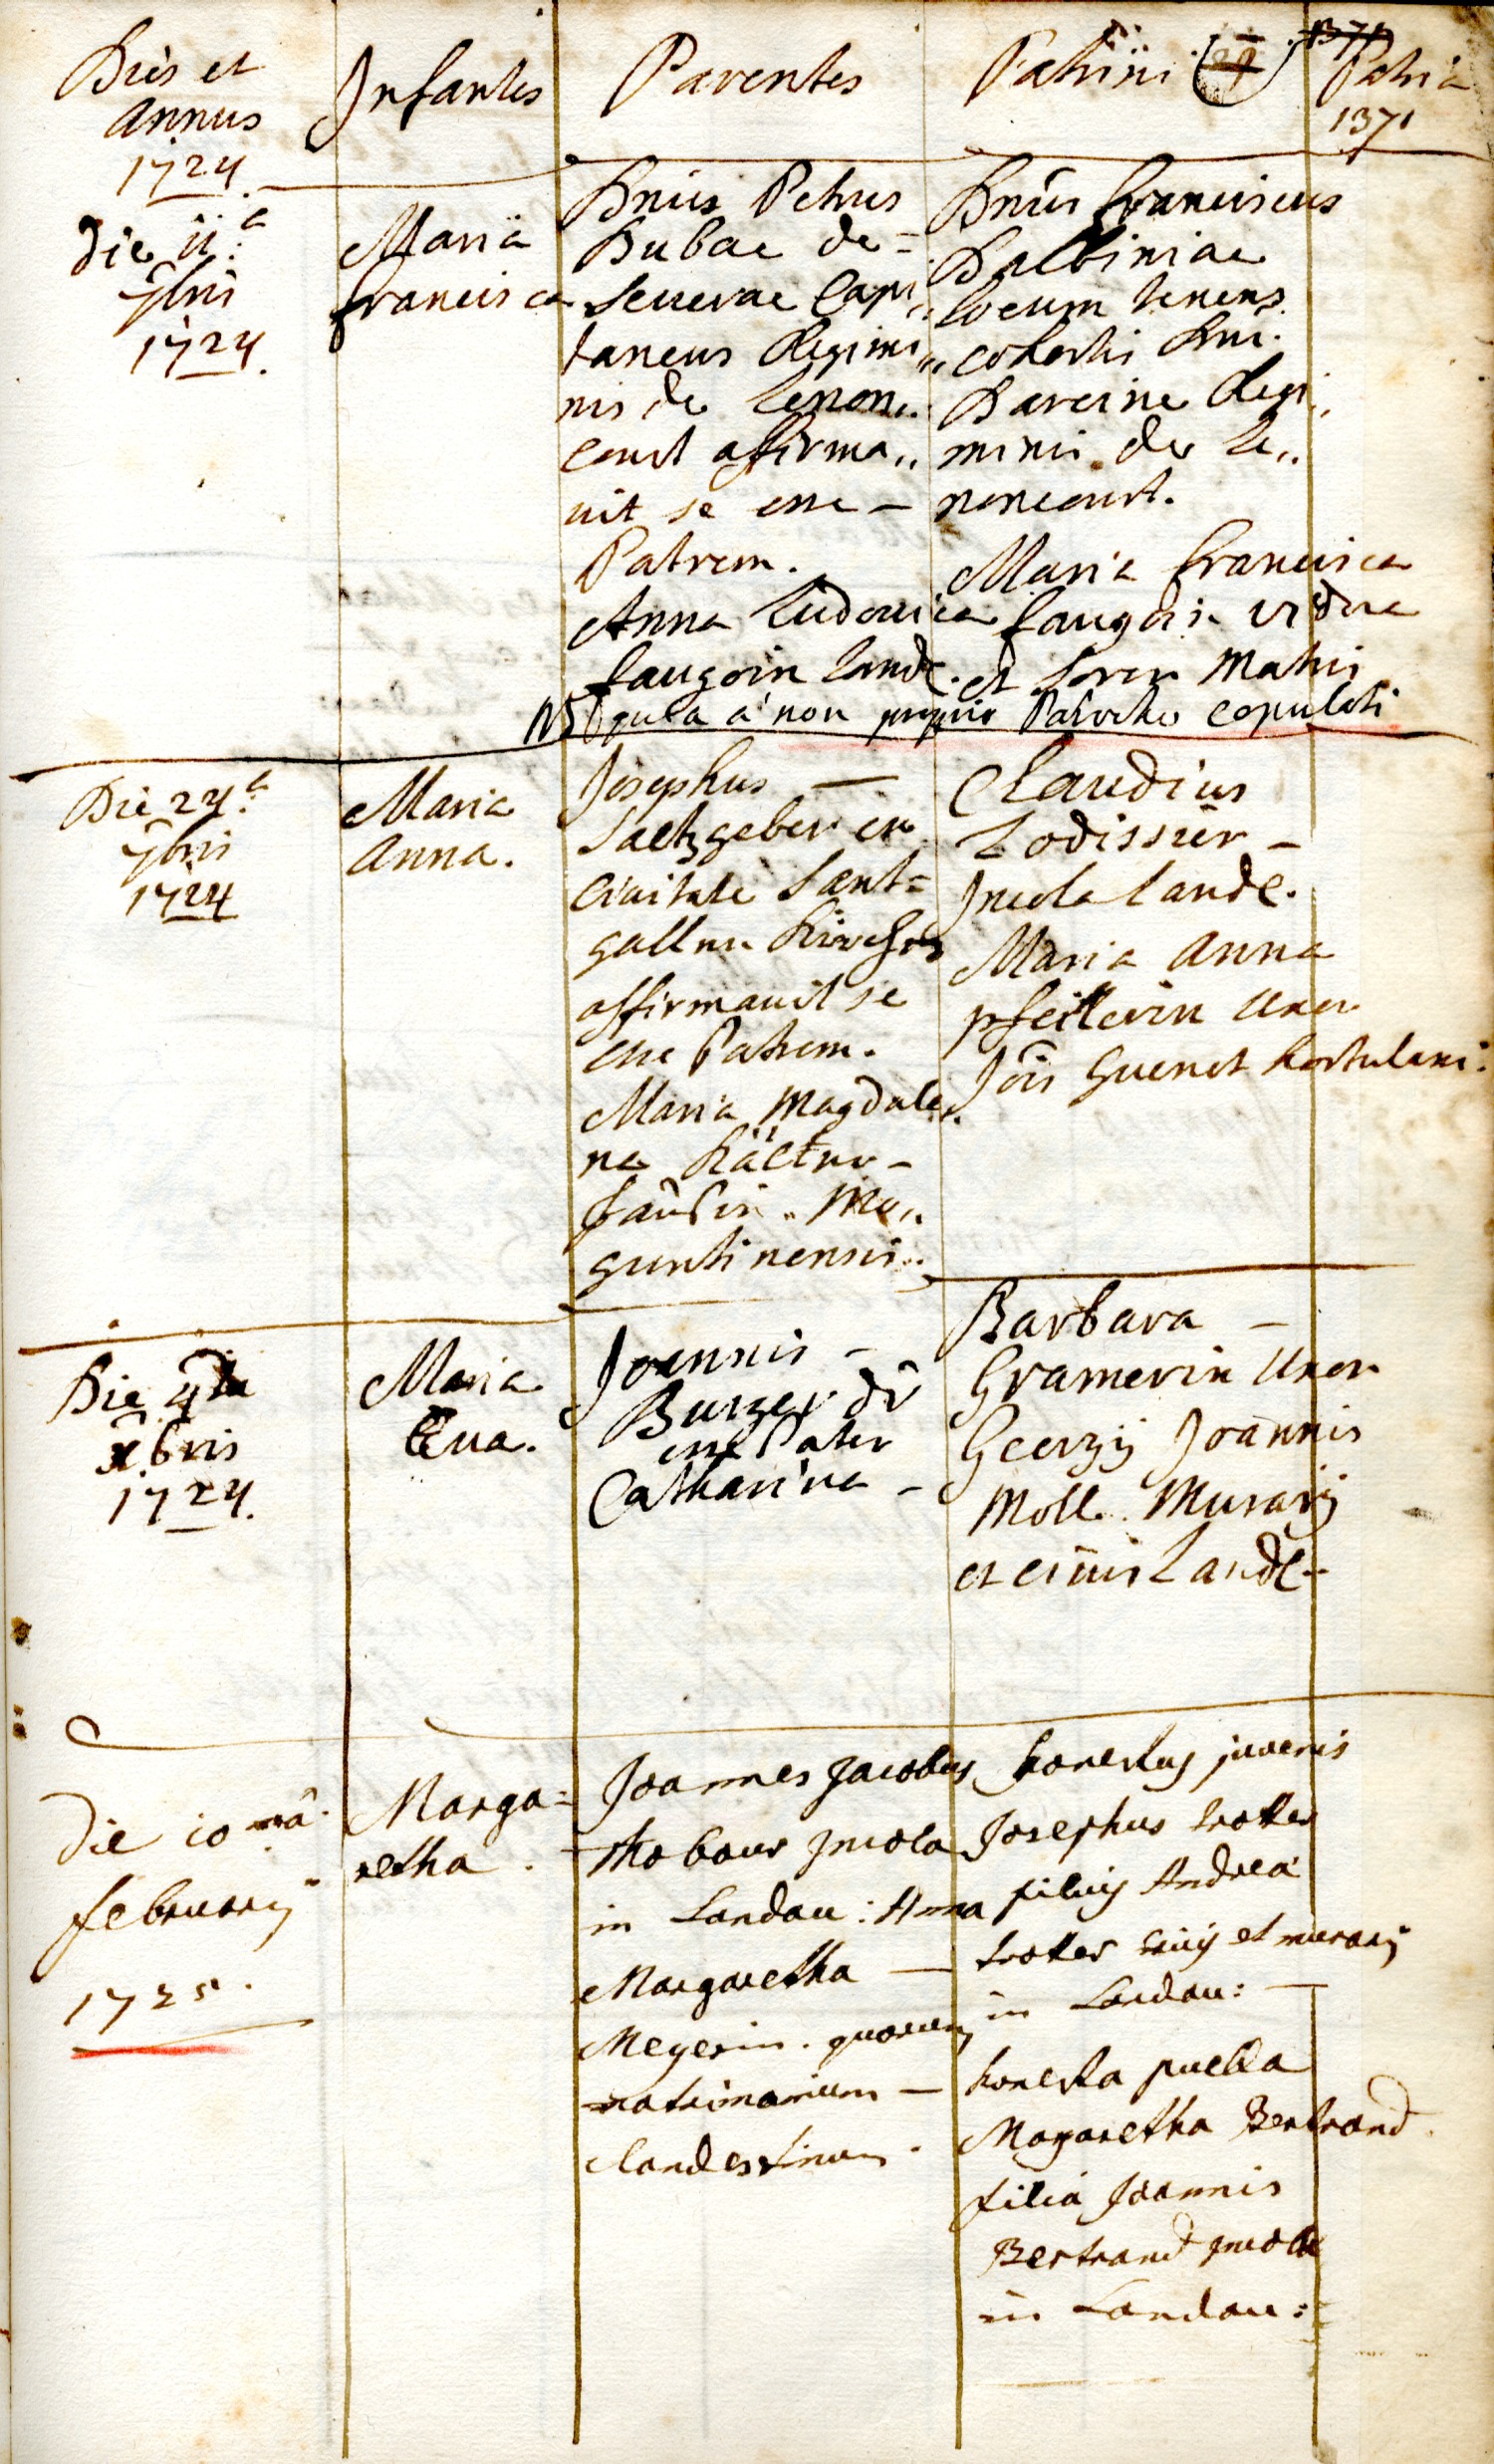 Dies et
Annus
1724
Infantes
Parentes
Patrini
Patria
1371
die 11.a
7bris
1724.
Maria
Francisca
Dnus Petrus
Dubac de=
Seuerac Capi„
taneus Regimi„
nis de Lenon„
court affirma„
uit se esse –
Patrem.
Anna Ludouica
faugoin Land.
Dnus Franciscus
Balbiniac
locum tenens
cohortis Dni.
Dareine Regi„
minis de Le„
noncourt.
Maria Francisca
faugoin vidua
et soror Matris
NB quia a non proprio Parocho copulati
Die 24.a
7bris
1724
Maria
Anna.
Josephus —
Saltzgeber ex
Ciuitate Sant=
gallen
affirmauit se
esse Patrem.
Maria Magdale„
na
Mo„
guntinensis.
Claudius
Lodissier –
Incola Land.
Maria Anna
pfeifferin uxor
Jois Guenet hortulani.
Die
xbris
1724.
Maria
Eua.
Joannis –
Burger dr
esse Pater
Catharina –
Barbara –
Gramerin uxor
Georgij Joannis
Moll. Murarij
et ciuis Land.
Die 10 mâ.
februarij
1725.
Marga=
retha.
Joannes Jacobus
incola
in Landau: Anna
Margaretha —
Meyerin. quorum
matrimonium —
clandestinum.
honestus juvenis
Josephus trotter
filius Andreä
trotter civis et murarij
in Landau: —
honesta puella
Margaretha Bertrand.
filia Joannis
Bertrand incolae
in Landau: